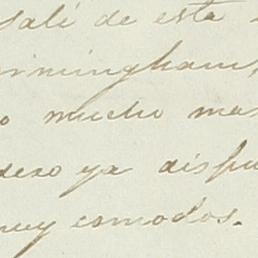 salí de esta
rmingham,
o mucho mas
dero ya dispu
muy comodos.